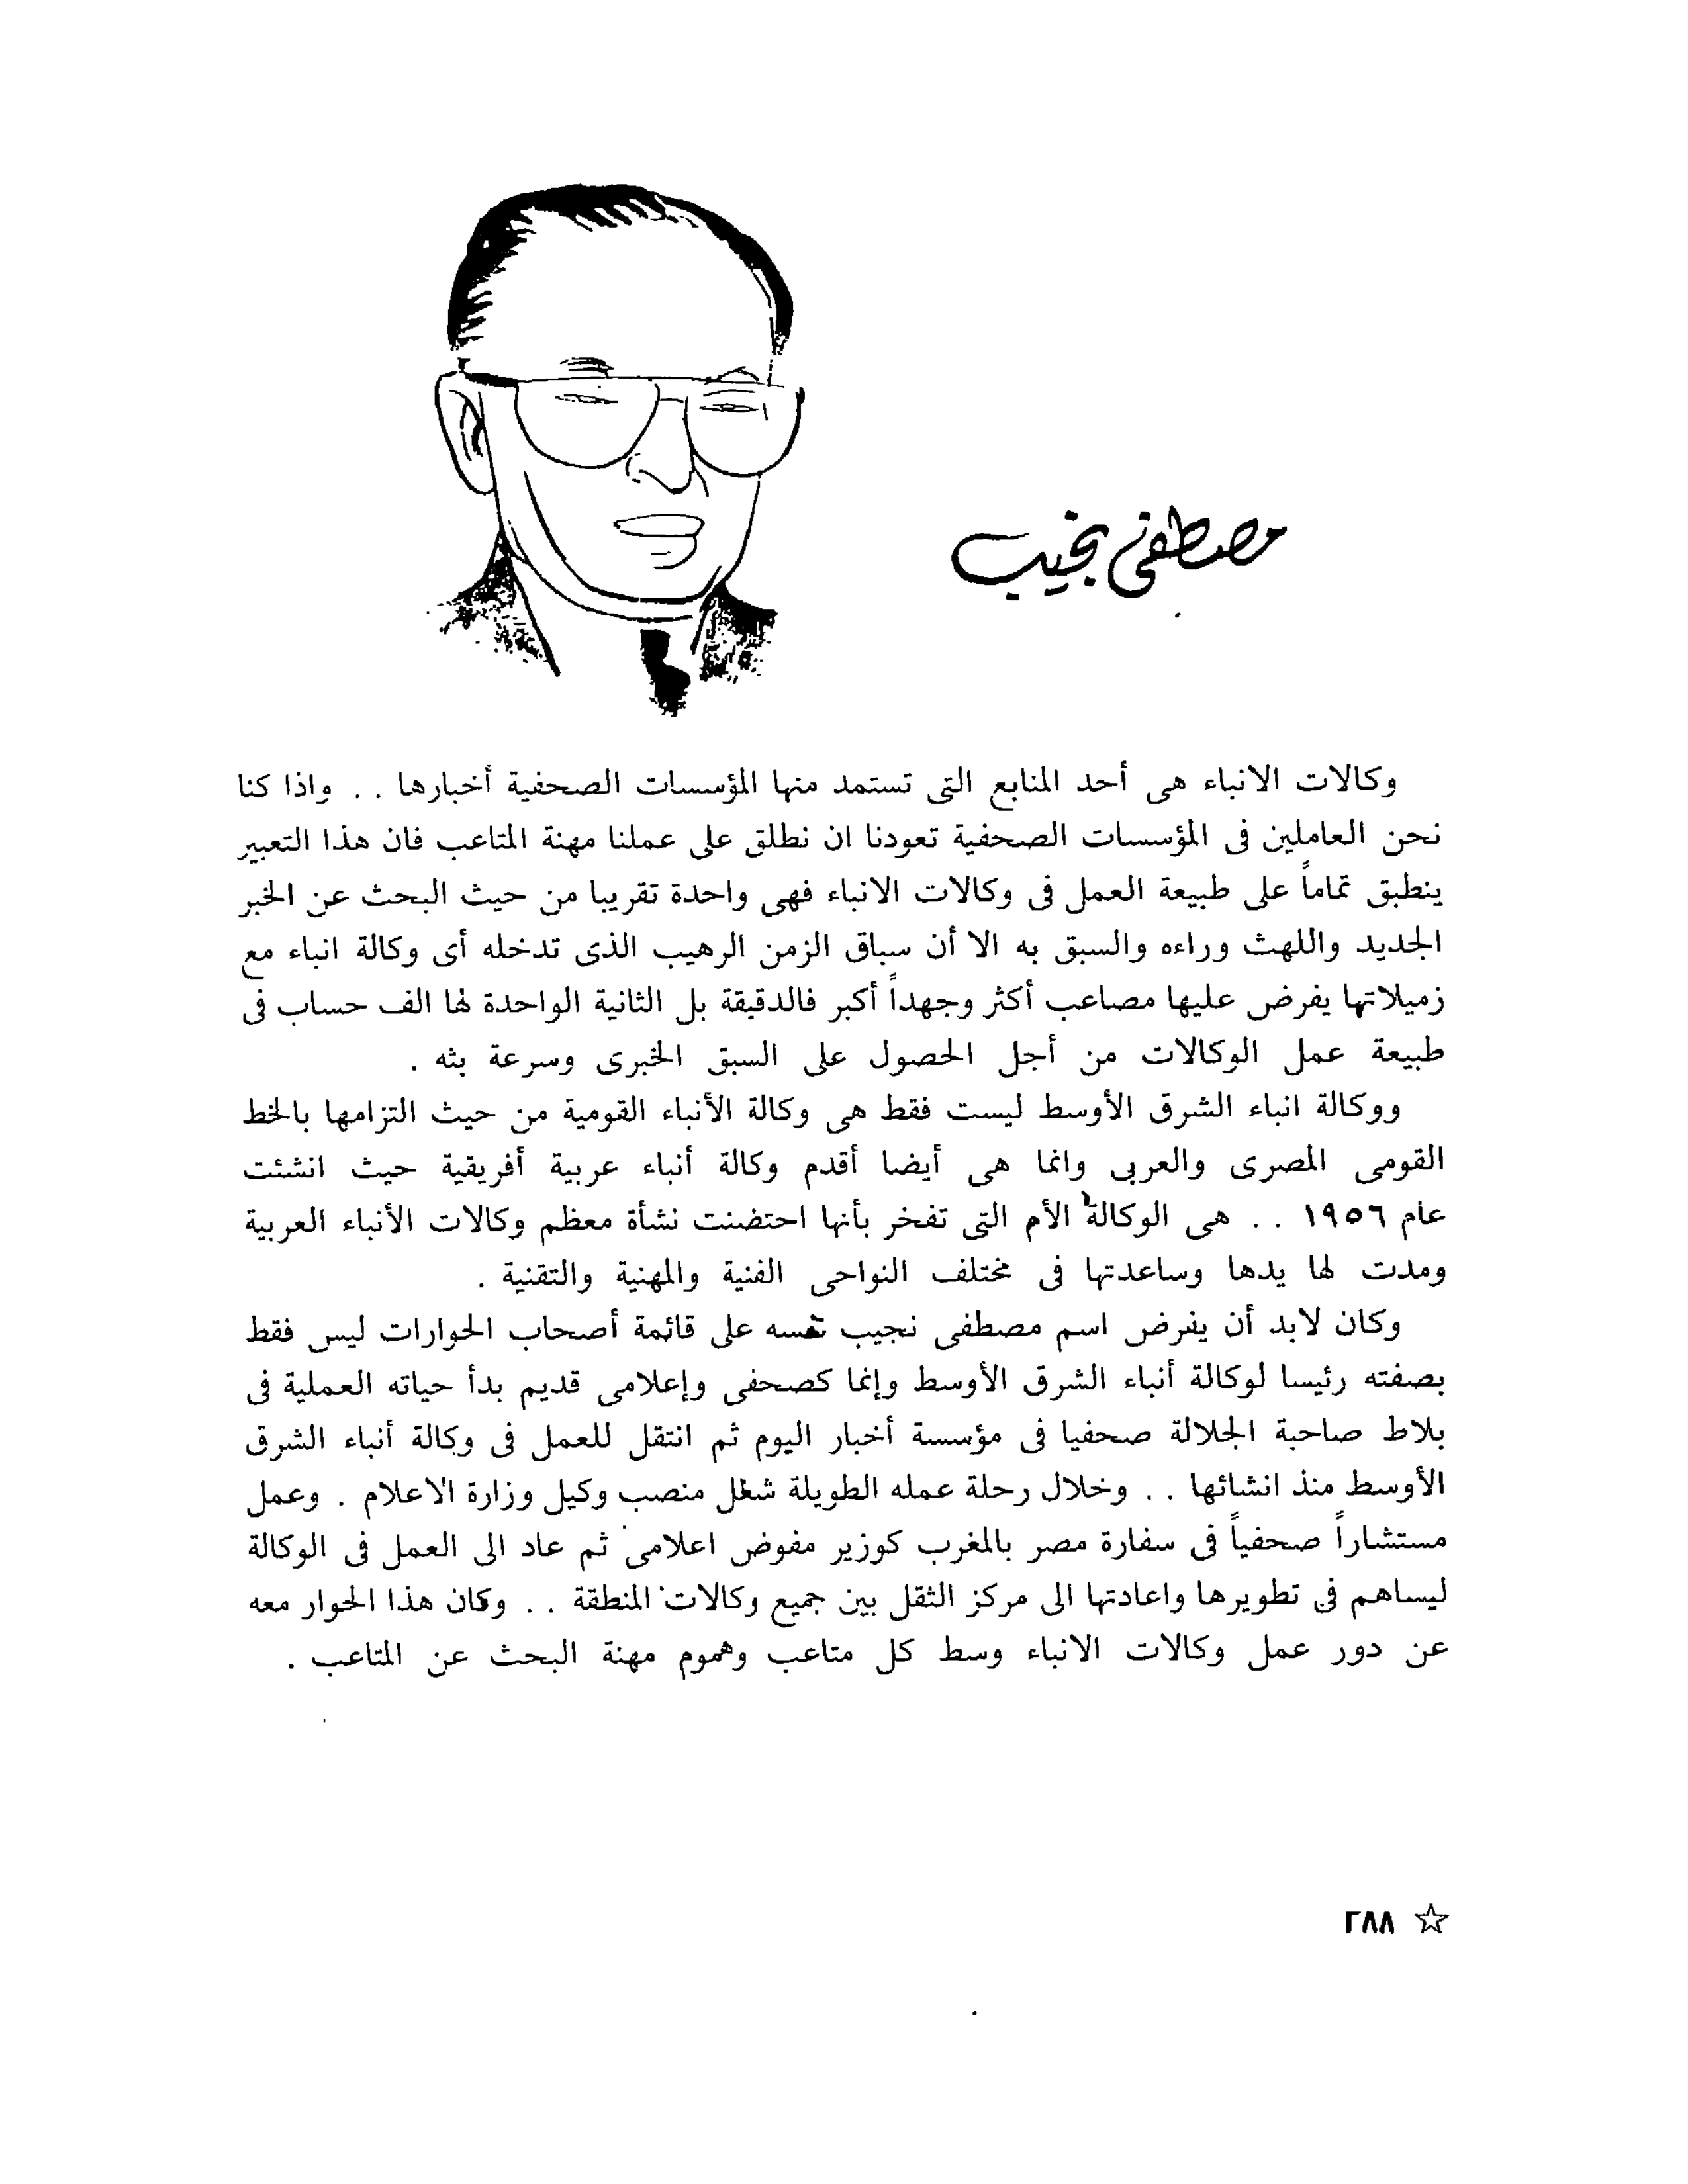 مصطفى نجيب
وكالات الانباء هى أحد المنابع التى تستمد منها المؤسسات الصحفية أخبارها . . واذا كنا
نحن العاملين فى المؤسسات الصحفية تعودنا ان نطلق على عملنا مهنة المتاعب فان هذا التعبير
ينطبق تماماً على طبيعة العمل فى وكالات الانباء فهى واحدة تقريبا من حيث البحث عن الخبر
الجديد واللهث وراءه والسبق به الا أن سباق الزمن الرهيب الذى تدخله أى وكالة انباء مع
زميلاتها يفرض عليها مصاعب أكثر وجهداً أكبر فالدقيقة بل الثانية الواحدة لها الف حساب فى
طبيعة عمل الوكالات من أجل الحصول على السبق الخبرى وسرعة بثه .
ووكالة انباء الشرق الأوسط ليست فقط هى وكالة الأنباء القومية من حيث التزامها بالخط
القومى المصرى والعربى وانما هى أيضا أقدم وكالة أنباء عربية أفريقية حيث انشئت
عام ١٩٥٦ . . هى الوكالة الأم التى تفخر بأنها احتضنت نشأة معظم وكالات الأنباء العربية
ومدت لها يدها وساعدتها فى مختلف النواحى الفنية والمهنية والتقنية .
وكان لابد أن يفرض اسم مصطفى نجيب نفسه على قائمة أصحاب الحوارات ليس فقط
بصفته رئيسا لوكالة أنباء الشرق الأوسط وإنما كصحفى وإعلامى قديم بدأ حياته العملية فى
بلاط صاحبة الجلالة صحفيا فى مؤسسة أخبار اليوم ثم انتقل للعمل فى وكالة أنباء الشرق
الأوسط منذ انشائها . . وخلال رحلة عمله الطويلة شغل منصب وكيل وزارة الاعلام . وعمل
مستشاراً صحفياً فى سفارة مصر بالمغرب كوزير مفوض اعلامى ثم عاد الى العمل فى الوكالة
ليساهم فى تطويرها واعادتها الى مركز الثقل بين جميع وكالات المنطقة . . وكان هذا الحوار معه
عن دور عمل وكالات الانباء وسط كل متاعب وهموم مهنة البحث عن المتاعب .
☆ ٢٨٨